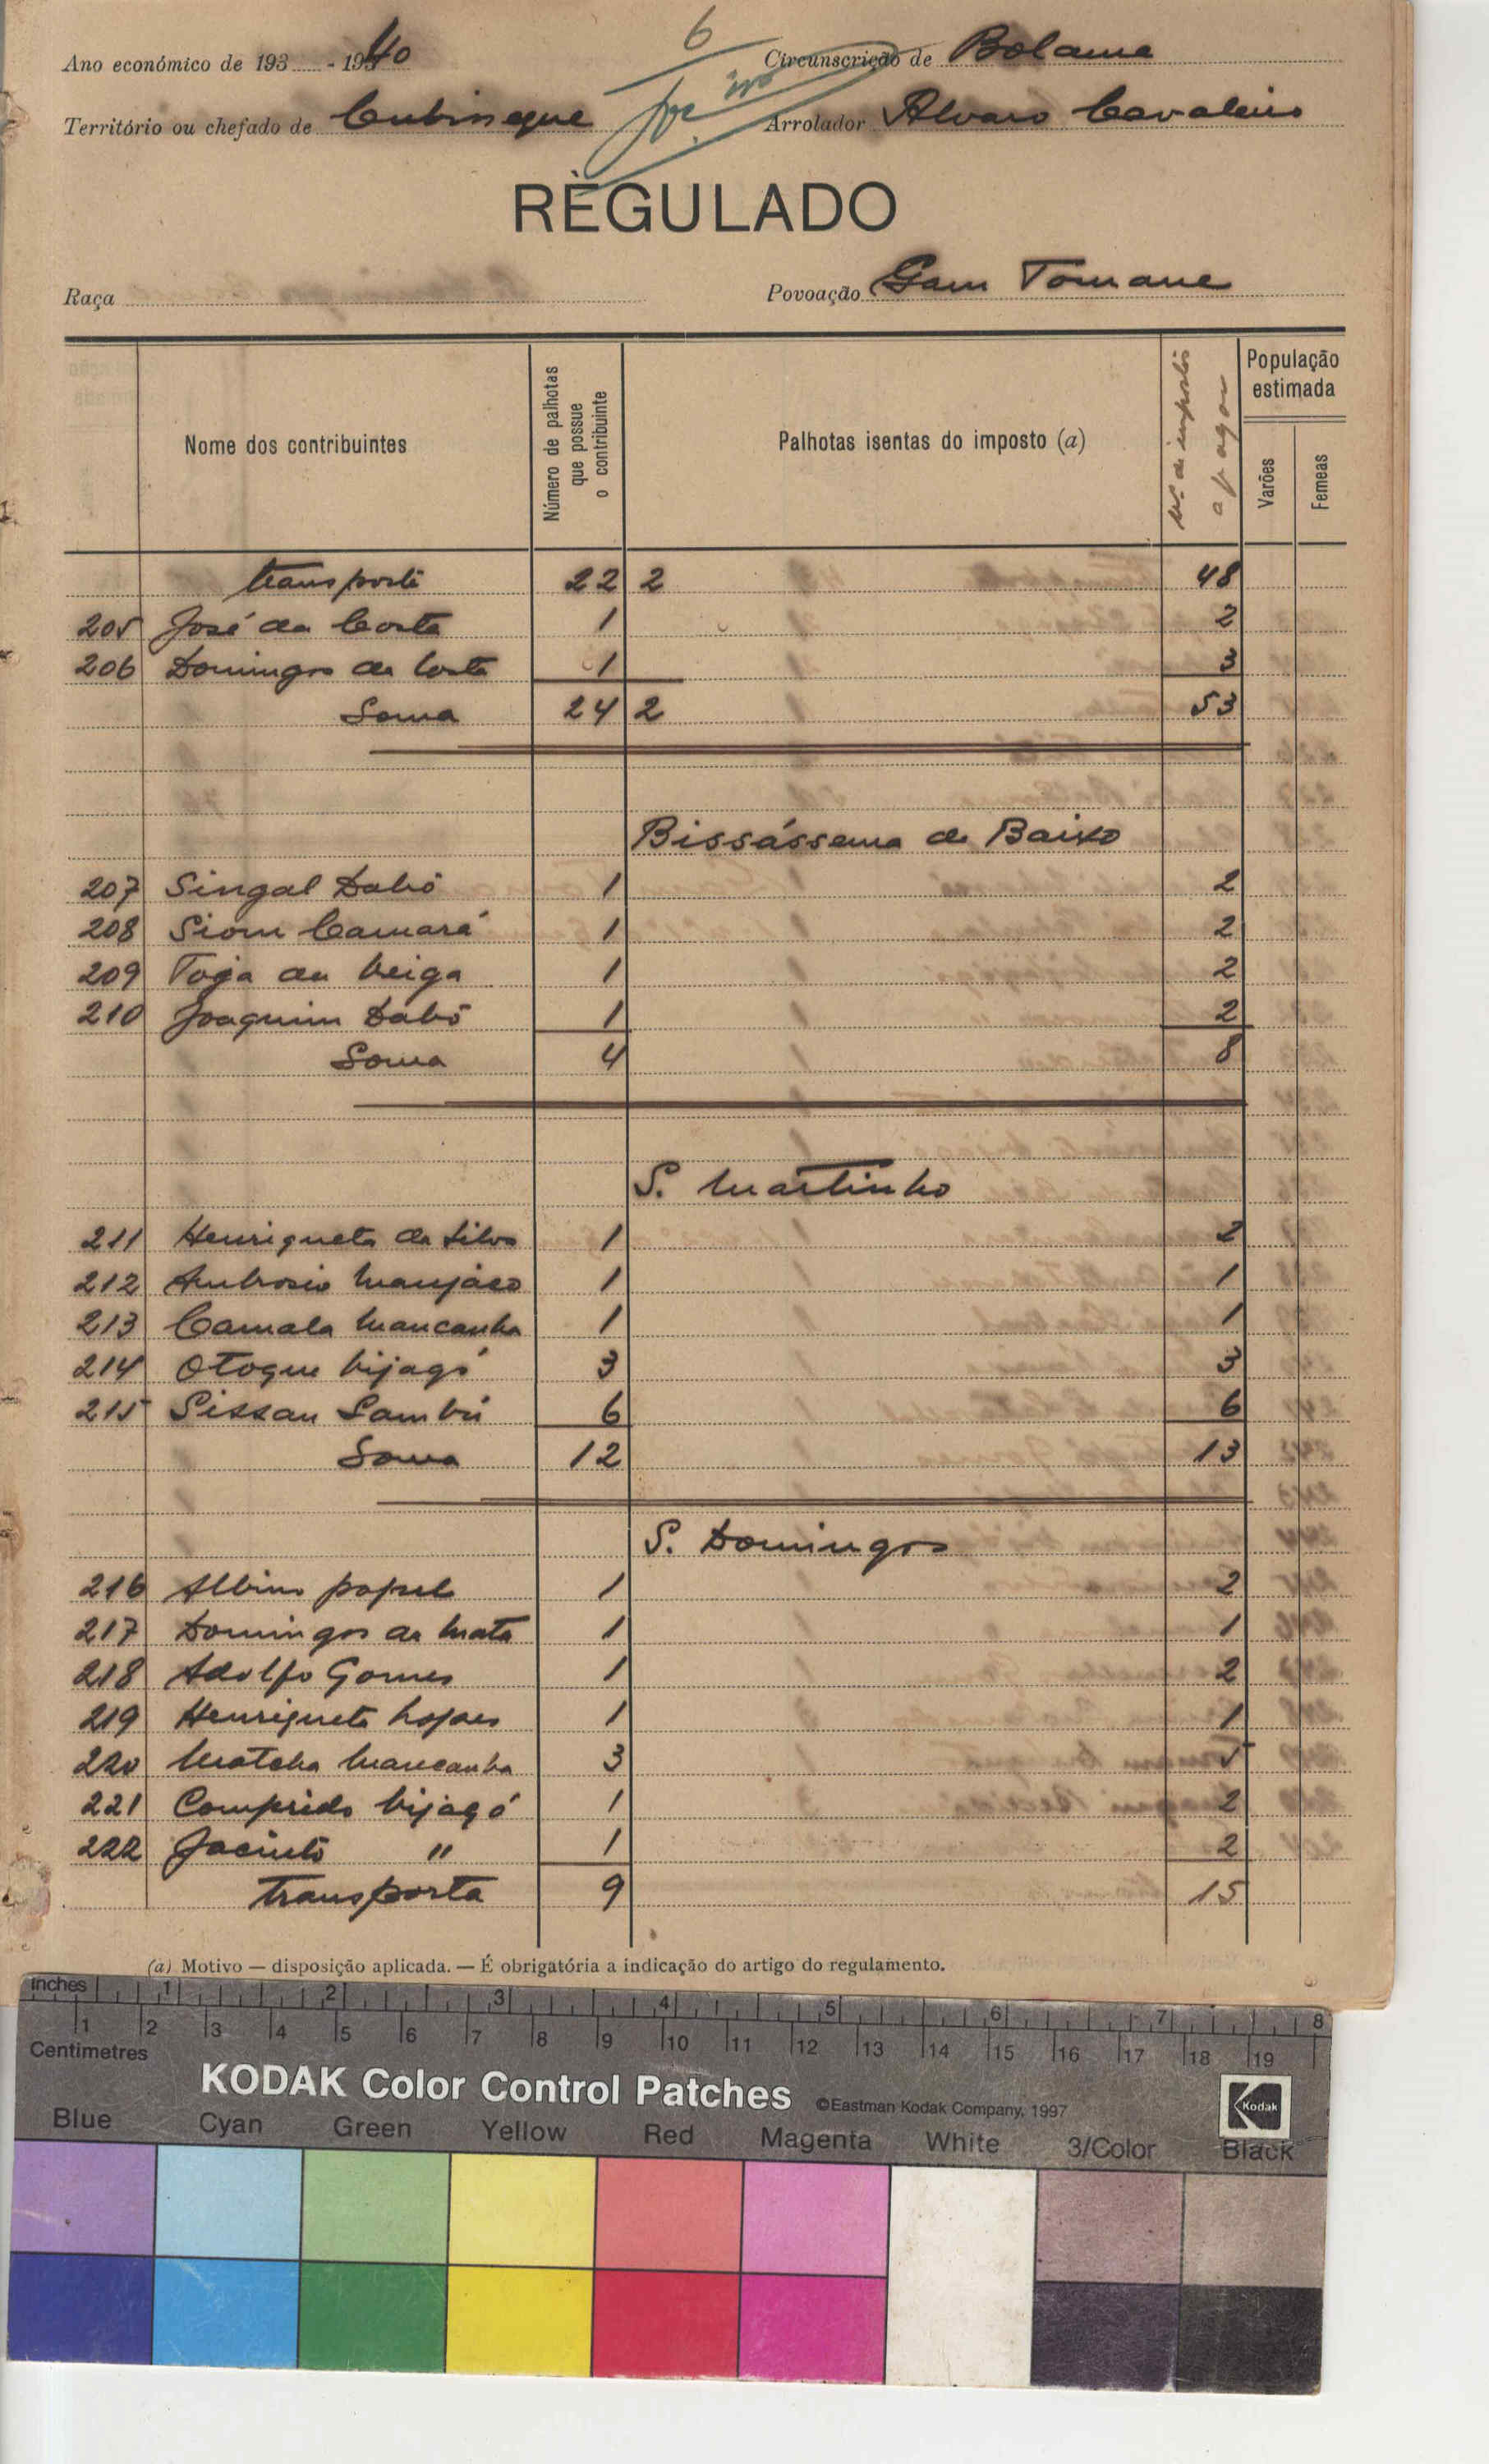 6
Ano económico de 193 - 1940 Circunscrição de Bolama
Território ou chefado de Cubisseque Arrolador Alvaro Cavaleiro
REGULADO
Raça Povoação Gam Tomane
Nome dos contribuintes
Número de palhotas que possue o contribuinte
Palhotas isentas do imposto (a)
Nº de impostos a pagar
População estimada
Varões
Femeas
transporte 22 2 48
205 José da Costa 1 2
206 Domingos da Costa 1 3
Soma 24 2 53
Bissássema de Baixo
207 Singal Dabó 1 2
208 Siom Camará 1 2
209 Toja da Veiga 1 2
210 Joaquim Dabó 1 2
Soma 4 8
S. Martinho
211 Henriqueta da Silva 1 2
212 Ambrosio Manjaco 1 1
213 Camala Mancanha 1 1
214 Otoque bijagó 3 3
215 Sissau Sambú 6 6
Soma 12 13
S. Domingos
216 Albino papel 1 2
217 Domingos da Mata 1 1
218 Adolfo Gomes 1 2
219 Henriqueta Lopes 1 1
220 Matcha Mancanha 3 5
221 Comprido bijagó 1 2
222 Jacinto " 1 2
transporta 9 15
(a) Motivo — disposição aplicada. — É obrigatória a indicação do artigo do regulamento.
inches 1 2 3 4 5 6 7 8
1 2 3 4 5 6 7 8 9 10 11 12 13 14 15 16 17 18 19
Centimetres
KODAK Color Control Patches ©Eastman Kodak Company, 1997 Kodak
Blue Cyan Green Yellow Red Magenta White 3/Color Black